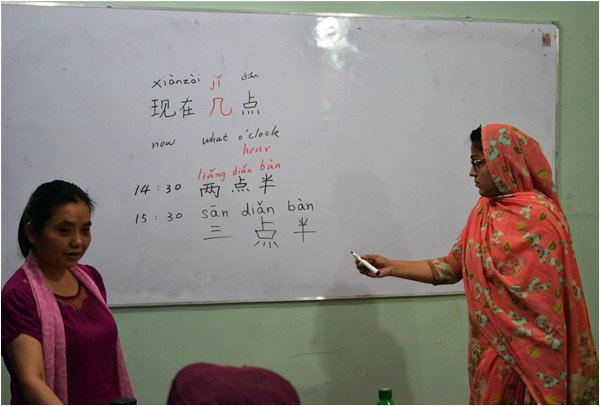 xiànzài jǐ diǎn
现在几点
now what o'clock
hour
liǎng diǎn bàn
14:30 两点半
15:30 sān diǎn bàn
三点半